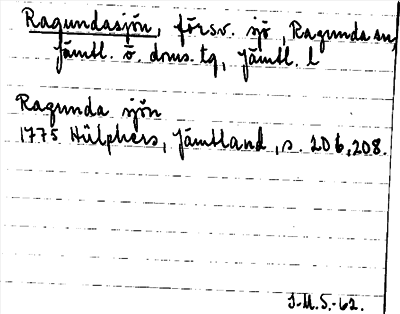 Ragundasjön, försv. sjö, Ragunda sn,
Jämtl. ö. doms. tg, Jämtl. l
Ragunda sjön
1775 Hülphers, Jämtland, s. 206, 208.
J.M.S.-62.